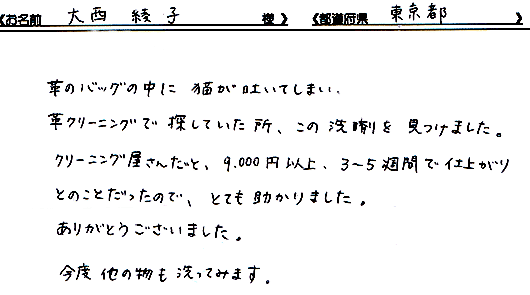 《お名前 大西 綾子 様》 《都道府県 東京都
革のバッグの中に 猫が吐いてしまい、
革クリーニングで 探していた所、この 洗剤を 見つけました。
クリーニング屋さんだと、9.000円以上、3〜5週間で仕上がり
とのことだったので、とても 助かりました。
ありがとうございました。
今度 他の物も 洗ってみます。